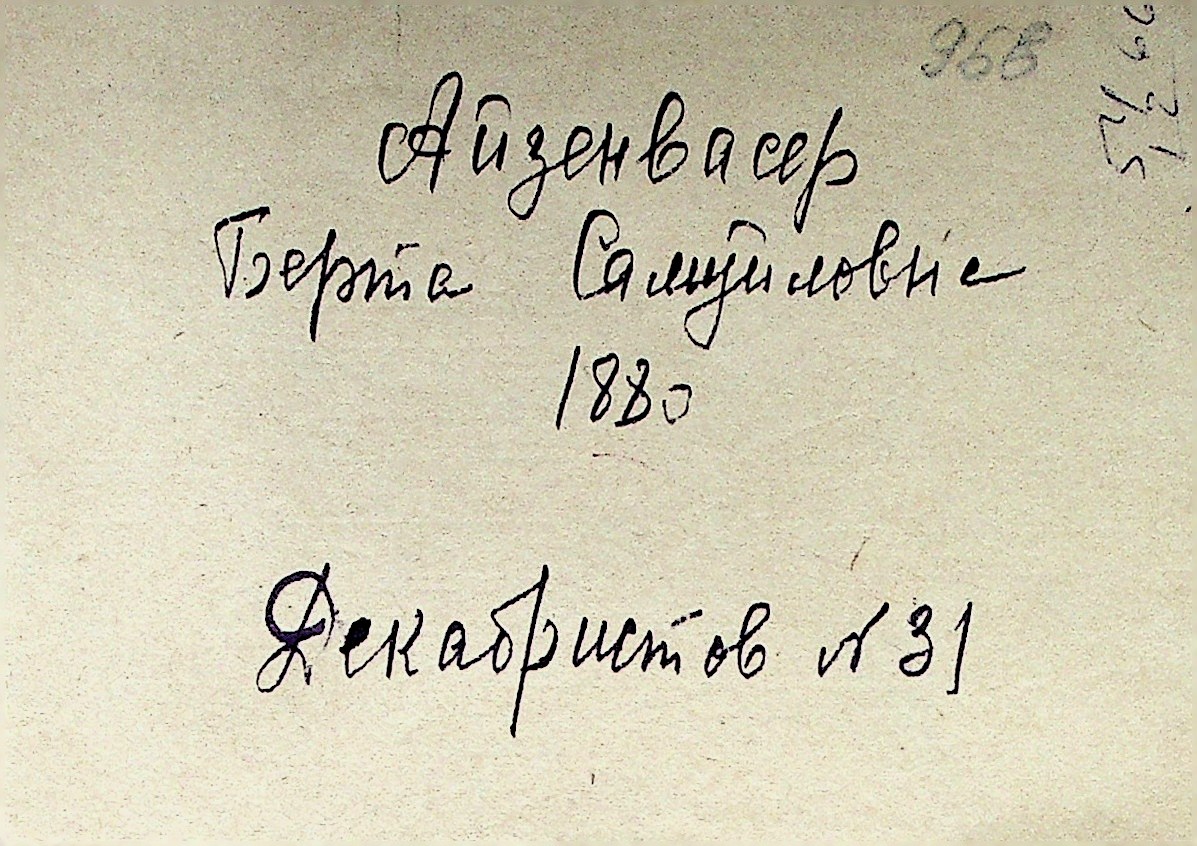 96в
Айзенвасер
Берта Самуйловна
1880
Декабристов № 31